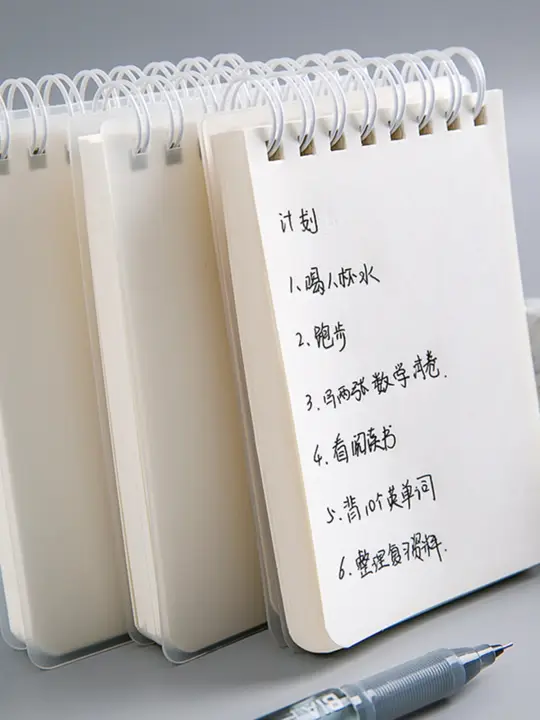 计划
1、喝八杯水
2、跑步
3、写两张数学试卷.
4、看阅读书
5、背10个英单词
6、整理复习资料.